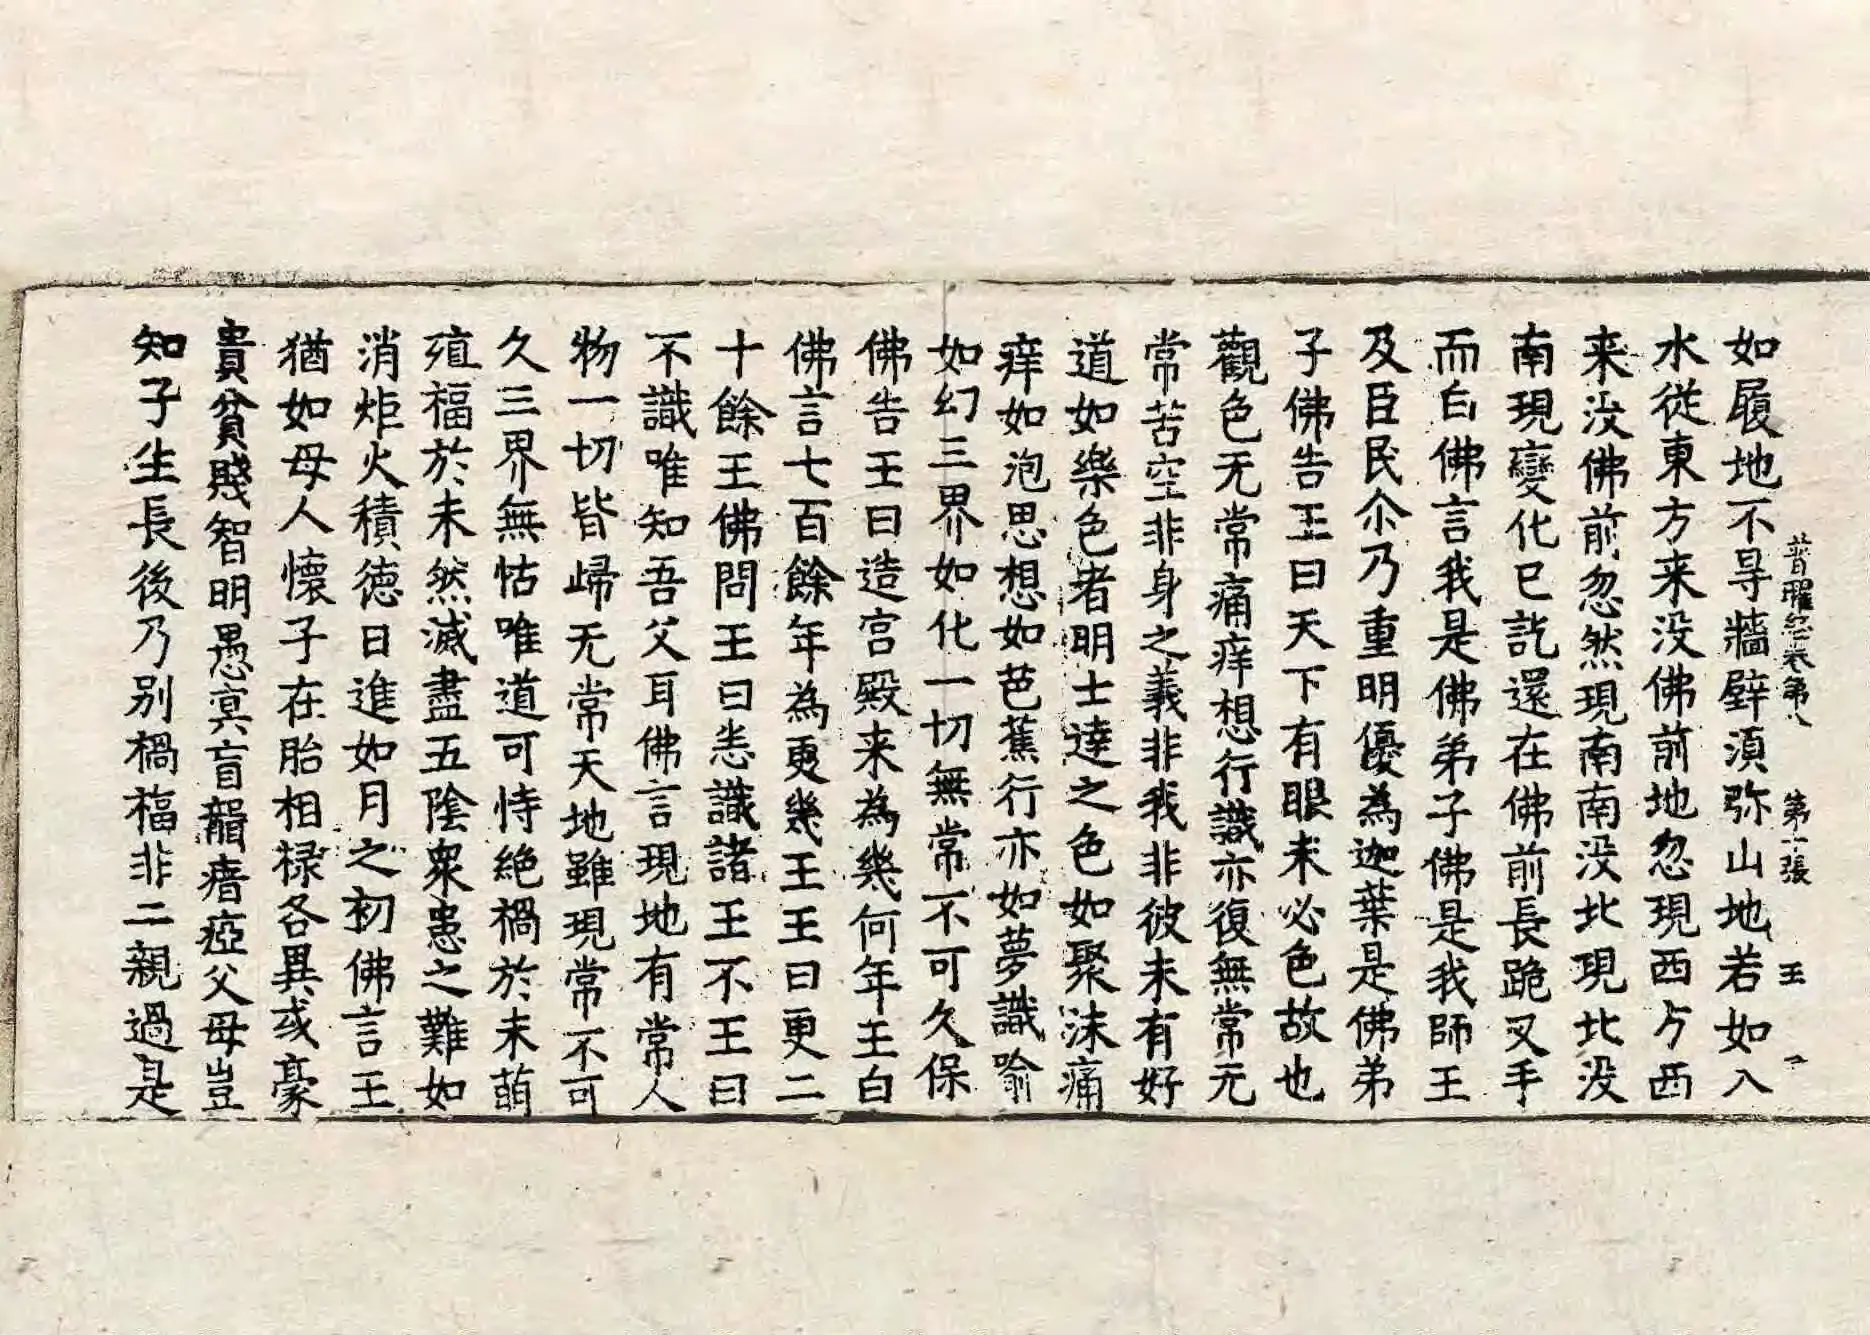 普曜經卷第八　第十一張　王
如履地不㝵牆壁湏弥山地若如入
水從東方来没佛前地忽現西方西
来没佛前忽然現南南没北現北没
南現變化已訖還在佛前長跪叉手
而白佛言我是佛弟子佛是我師王
及臣民尒乃重明優為迦葉是佛弟
子佛告王曰天下有眼未必色故也
觀色无常痛痒想行識亦復無常无
常苦空非身之義非我非彼未有好
道如樂色者明士達之色如聚沫痛
痒如泡思想如芭蕉行亦如夢識喻
如幻三界如化一切無常不可久保
佛告王曰造宫殿来為幾何年王白
佛言七百餘年為更幾王王曰更二
十餘王佛問王曰悉識諸王不王曰
不識唯知吾父耳佛言現地有常人
物一切皆歸无常天地雖現常不可
久三界無怙唯道可恃絶禍於未萌
殖福於未然滅盡五陰衆患之難如
消炬火積徳日進如月之初佛言王
猶如母人懷子在胎相禄各異或豪
貴貧賤智明愚冥盲聾瘖瘂父母豈
知子生長後乃别禍福非二親過是